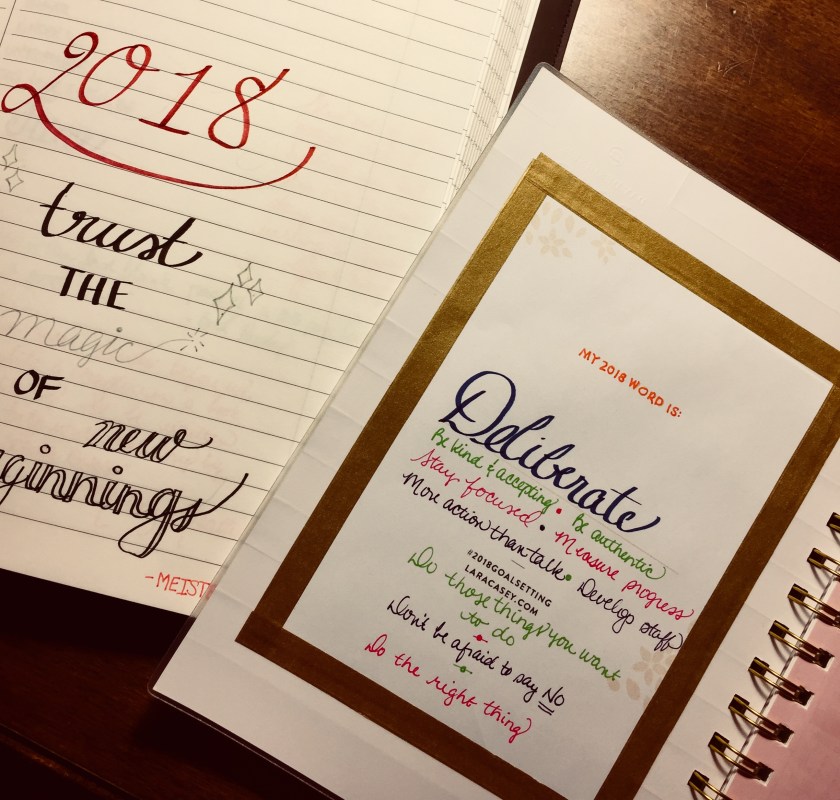 2018
trust
THE
magic
OF
new
ginnings
-MEIST
MY 2018 WORD IS:
Deliberate
Be kind & accepting • Be authentic
Stay focused • Measure progress
More action than talk • Develop staff
#2018GOALSETTING
LARACASEY.COM
Do those things you want
to do
Don't be afraid to say NO
Do the right thing